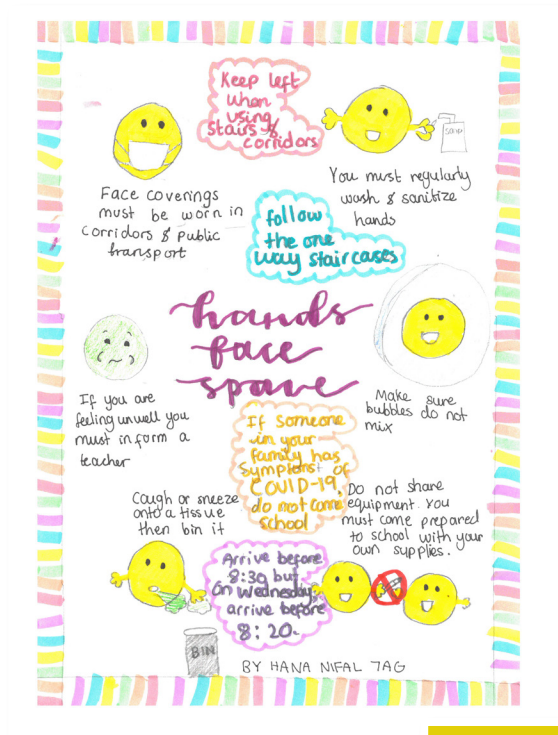 Keep left
when
using
stairs &
corridors
SOAP
Face coverings
must be worn in
corridors & public
transport
You must regularly
wash & sanitize
hands
follow
the one
way staircases
hands
face
space
If you are
feeling unwell you
must inform a
teacher
Make sure
bubbles do not
mix
If someone
in your
family has
symptoms of
COVID-19,
do not come
school
Cough or sneeze
onto a tissue
then bin it
Do not share
equipment. You
must come prepared
to school with your
own supplies.
Arrive before
8:30 but
on Wednesday
arrive before
8:20.
BIN
BY HANA NIFAL 7AG